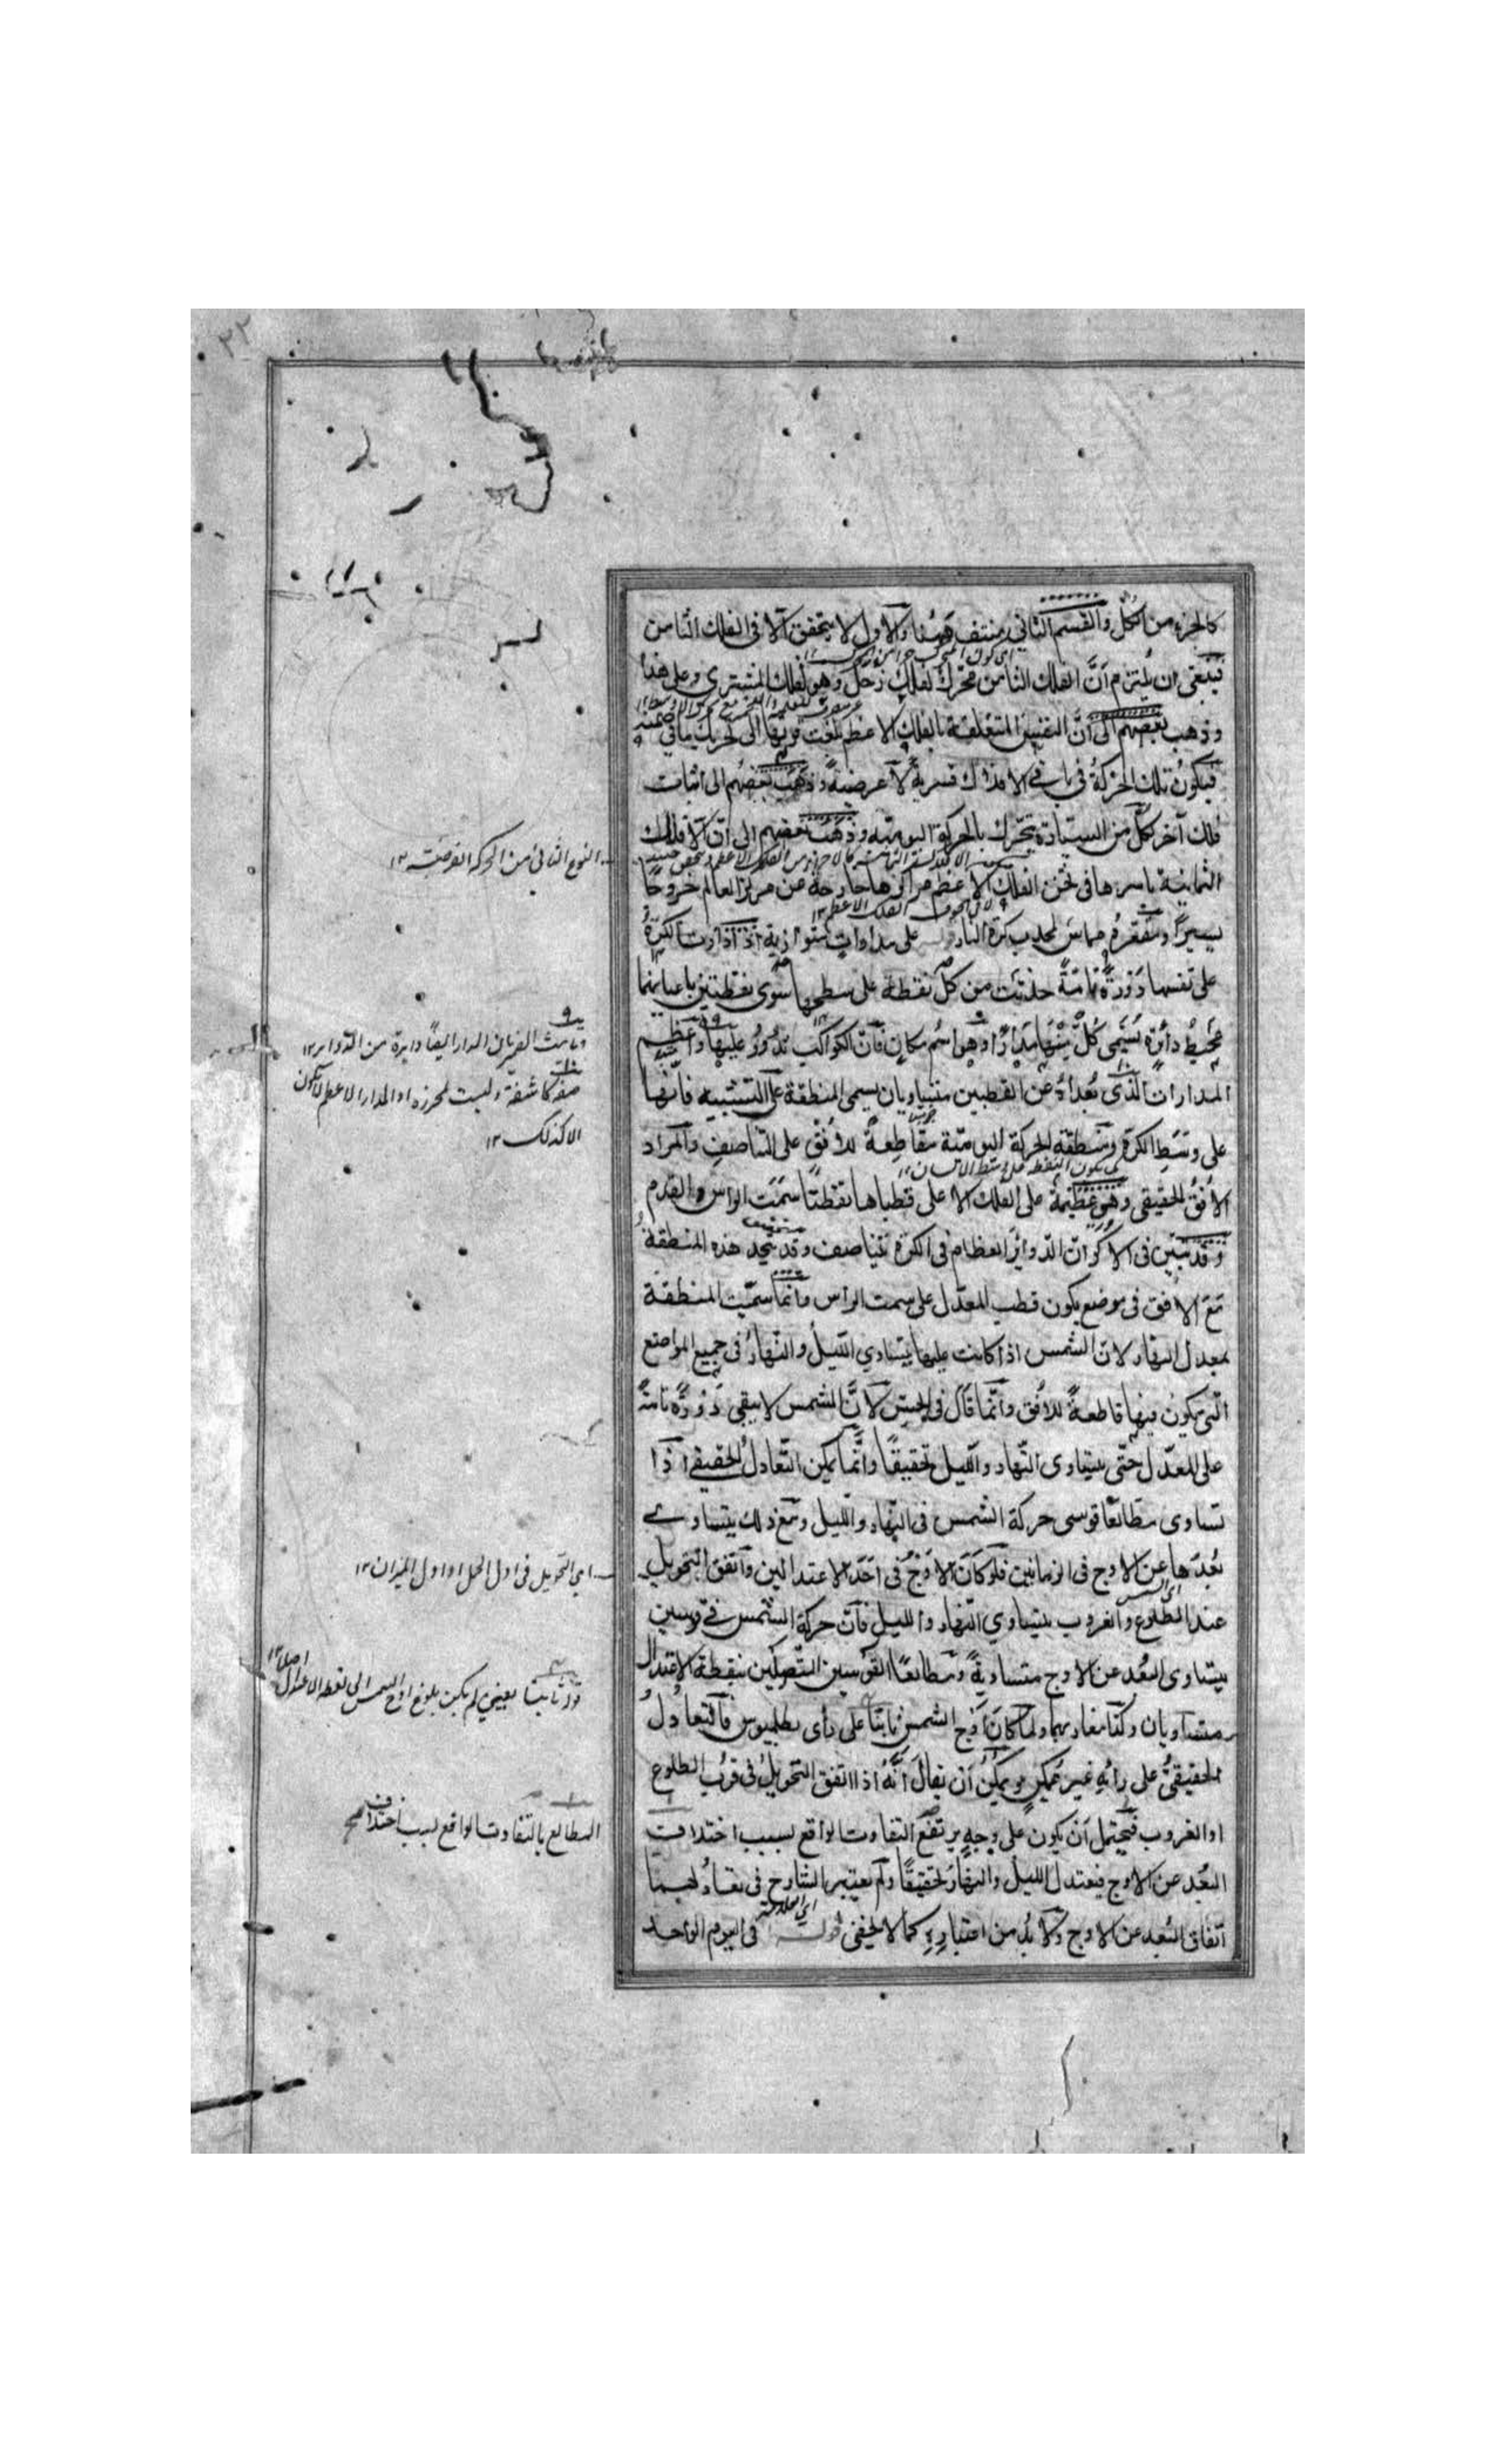 ٢٢
كالجزء من الكل والقسم الثاني منتف ههنا والاول لا يتحقق الا فى الفلك الثامن
فينبغى ان يلتزم اَنَّ الفلك الثامن محرّك لفلك زحل وهو لفلك المشترى وعلى هذا
وذهب بعضهم الى اَنَّ النفس المتعلقة بالفلك الاعظم بلغت قوتها الى تحريك ما في ضمنه
فيكونُ تلك الحركةُ فى باقي الافلاك قسريةً لا عرضيةً وذهب بعضُهم الى اثبات
فلك آخر لكلٍّ من السيّارة يتحرّك بالحركة اليومية وذهب بعضهم الى انّ الافلاك
الثمانية باسرها فى ثخن الفلك الاعظم مراكزها خارجة عن مركز العالم خروجًا
يسيرًا ومقعّره مماسّ لمحدب كرة النار قوله على مدارات متوازية اذ اذا دارت الكرةُ
على نفسها دَوْرةً تامّةً حدثت من كلّ نقطة على سطحها سوى نقطتين باعيانهما
مُحيطُ دائرة يُسمّى كُلٌّ منها مدارًا وهو اسُم مكان فانّ الكواكب تدُورُ عليها واعظم
المدارات الذى بُعداهُ عن القطبين متساويان يسمى المنطقة على التشبيه فانّها
على وسَطِ الكرة ومنطقة الحركة اليومية مقاطعةٌ للاُفُق على التناصف والمراد
الاُفُقُ الحقيقى وهى عظيمة على الفلك الاعلى قطباها نقطتا سَمْتَ الراس والقدم
وقد تبيّن فى الاكر ان الدوائرَ العظام فى الكرة تتناصف وقد يتحد هذه المنطقةُ
مَعَ الافق فى موضع يكون قطب المعدّل على سمت الراس وانّما سمّيت المنطقة
بمعدل النهار لان الشمس اذا كانت عليها يتساوي الليلُ والنهارُ فى جميع المواضع
الّتى يكونُ فيها قاطعةً للاُفق وانّما قال فى الحسّ لانَّ الشمس لا يبقى دَوْرةً تامّةً
على المعدّل حتّى يتساوى النهار والليل تحقيقًا وانّما يمكن التّعادلُ الحقيقي اذا
تساوى مطالعًا قوسى حركة الشمس فى النهار والليل ومَعَ ذلك يتساوى
بُعدَها عن الاوج فى الزمانين فلو كانَ الاَوْجُ فى اَحَدِ الاعتدالين واتفق التحويل
عند الطُّلوع والغروب يتساوي النهار والليل فانّ حركة الشمس فى قوسين
يتساوى البُعد عن الاوج متساويةٌ ومطالعًا القوسين المتّصلين بنقطة الاعتدال
متساويان وكذا مغاربهما ولما كانَ اَوْج الشمس ثابتًا على رأى بطلميوس فالتعادلُ
الحقيقىُّ على رائهِ غيرُ ممكنٍ ويمكنُ اَن يقالَ اَنّهُ اذا اتفق التحويلُ فى قربِ الطلوع
اوالغروب فيحتمل اَن يكون على وجهٍ يرتفع التفاوت الواقع بسبب اختلاف
البُعد عن الاوج فيعتدل الليلُ والنهارُ تحقيقًا ولَم يعتبر الشارح فى تعادُلهما
اتّفاق البُعد عن الاوج ولا بُدّ من اعتبارِهِ كما لا يخفى قوله فى اليوم الواحد
النوع الثاني من الحركة العرضية ١٢
وتانيث الضمير لان المدار ايضًا دايرة من الدواير ١٢
صفه كاشفة وليست لمحرزه اذ المدار الاعظم لا يكون
الا كذلك ١٢
اى التحويل فى اول الحمل او اول الميزان ١٢
قوله ثابتا يعنى لم يكن بلوغ اوج الشمس الى نقطه الاعتدال اصلا ١٢
المطالع بالتفاوت الواقع بسبب اختلاف